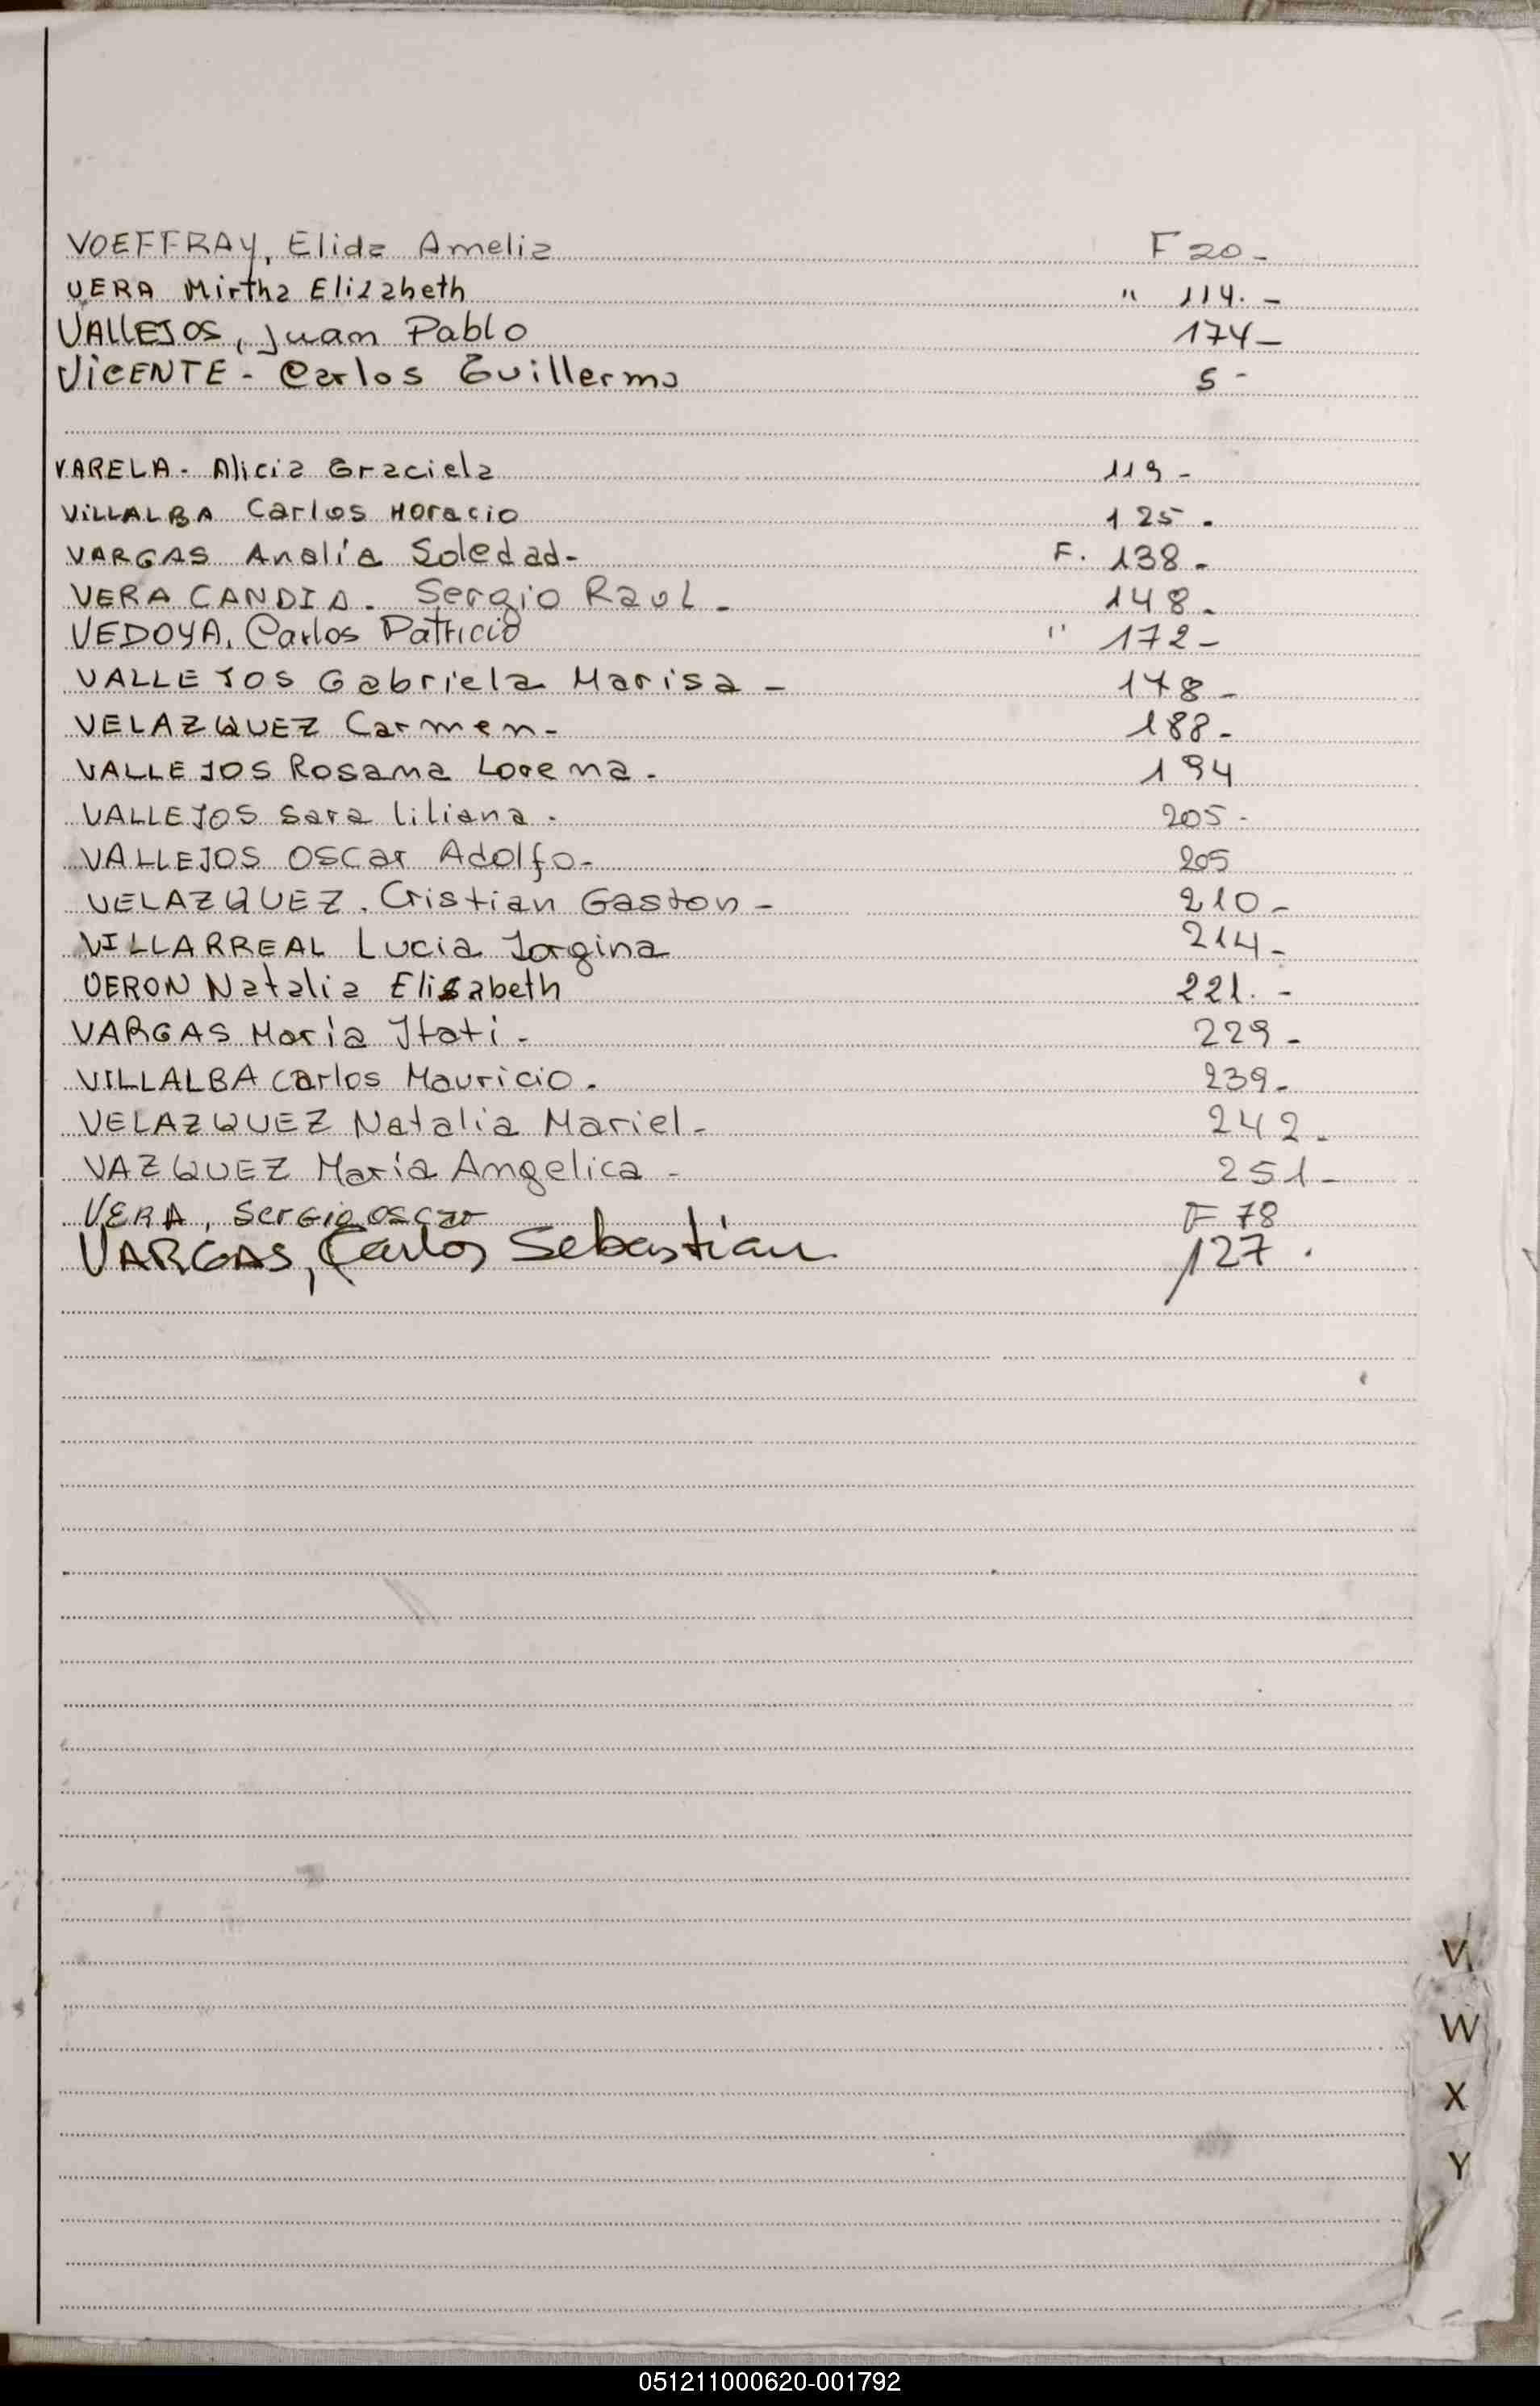 VOEFFRAY, Elida Amelia F 20 -
VERA Mirtha Elizabeth " 114. -
VALLEJOS, Juan Pablo 174 -
VICENTE - Carlos Guillermo 5 -
VARELA - Alicia Graciela 119 -
VILLALBA Carlos Horacio 125 .
VARGAS Analía Soledad - F. 138 -
VERA CANDIA - Sergio Raul - 148 -
VEDOYA, Carlos Patricio " 172 -
VALLEJOS Gabriela Marisa - 178 -
VELAZQUEZ Carmen - 188 -
VALLEJOS Rosana Lorena - 194
VALLEJOS Sara liliana - 205 -
VALLEJOS Oscar Adolfo - 205
VELAZQUEZ . Cristian Gaston - 210 -
VILLARREAL Lucia Jorgina 214 -
VERON Natalia Elisabeth 221. -
VARGAS María Itati - 229 -
VILLALBA Carlos Mauricio . 239 -
VELAZQUEZ Natalia Mariel - 242 -
VAZQUEZ María Angelica - 251 -
VERA, Sergio oscar F 78
VARGAS, Carlos Sebastian 127 .
V
W
X
Y
051211000620-001792